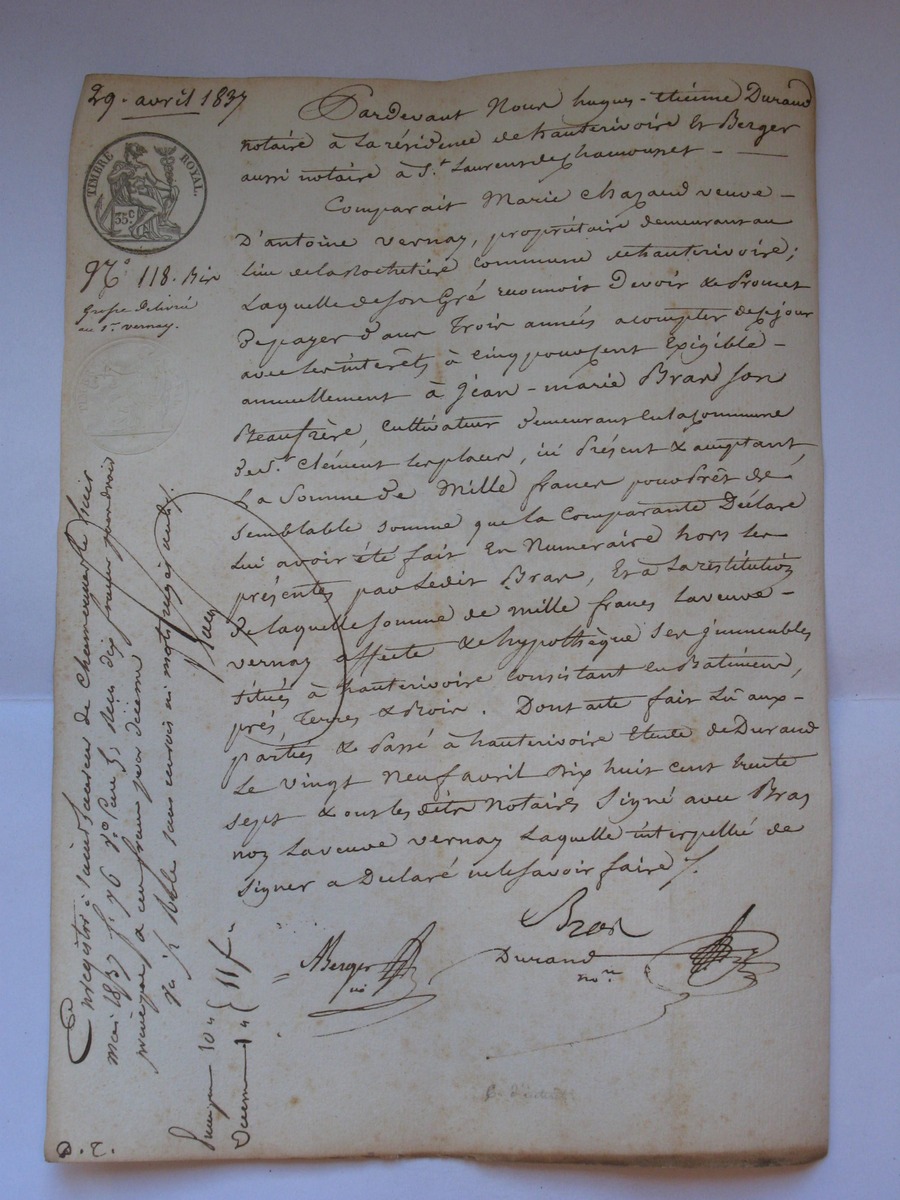 29. avril 1837
TIMBRE ROYAL.
35 c
No. 118. Bis
Grosse délivrée
au Sr. vernay.
Pardevant Nous hugues-étienne Durand
notaire à La résidence de hauterivoire Et Berger
aussi notaire à St. Laurent de Chamousset —
Comparait Marie Chazaud veuve —
D'antoine vernay, propriétaire demeurant au
lieu de la Rochetière commune de hauterivoire;
Laquelle de son Gré reconnoit Devoir & Promet
De payer Dans Trois années a compter de ce jour
avec les intérêts à Cinq pour Cent Exigible —
annuellement à Jean-marie Bras son
Beaufrère, cultivateur demeurant En la Commune
de St. Clément les places, ici Présent & acceptant,
La Somme de Mille francs pour Prêt de
semblable somme que la Comparante Déclare
Lui avoir été fait En Numeraire hors les
présentes par Ledit Bras, Et a La restitution
de laquelle somme de mille francs la veuve —
vernay affecte & hypothèque ses immeubles
situés à hauterivoire Consistant En Batiments,
prés, Terres & Bois. Dont acte fait Lû aux-
parties & Passé à hauterivoire Etude de Durand
Le vingt Neuf avril Dix huit cent trente
sept & ont les dits Notaires Signé avec Bras
non La veuve vernay Laquelle interpellée de
Signer a Déclaré ne le Savoir faire /.
Bras
Berger
no
Durand
nore.
Enregistré à Saint Laurent de Chamousset le huit
mai 1837 fo 76 Vo Case 5, reçu dix francs pour droit
principal & un franc pour décime
Principal 10 "
Décime 1 "
11 f "
D. E.